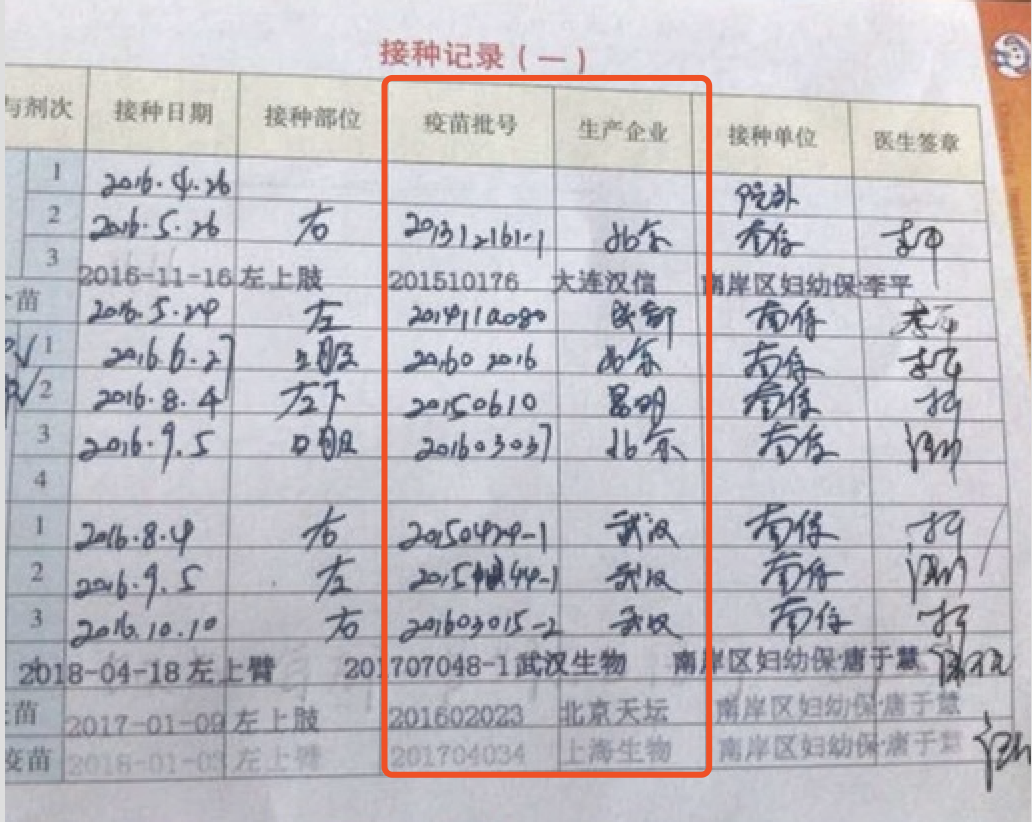 接种记录(一)
与剂次 接种日期 接种部位 疫苗批号 生产企业 接种单位 医生签章
1 2016.4.26 院外
2 2016.5.26 右 201312161-1 北京 南保
3 2016-11-16 左上肢 201510176 大连汉信 南岸区妇幼保 李平
苗 2016.5.24 左 成都 南保
1 2016.6.27 口服 201602016 北京 南保
2 2016.8.4 左下 20150610 昆明 南保
3 2016.9.5 口服 201603037 北京 南保
4
1 2016.8.4 右 20150424-1 武汉 南保
2 2016.9.5 左 武汉 南保
3 2016.10.10 右 201603015-2 武汉 南保
2018-04-18 左上臂 201707048-1 武汉生物 南岸区妇幼保·唐于慧
苗 2017-01-09 左上肢 201602023 北京天坛 南岸区妇幼保·唐于慧
疫苗 2018-01-03 左上臂 201704034 上海生物 南岸区妇幼保·唐于慧